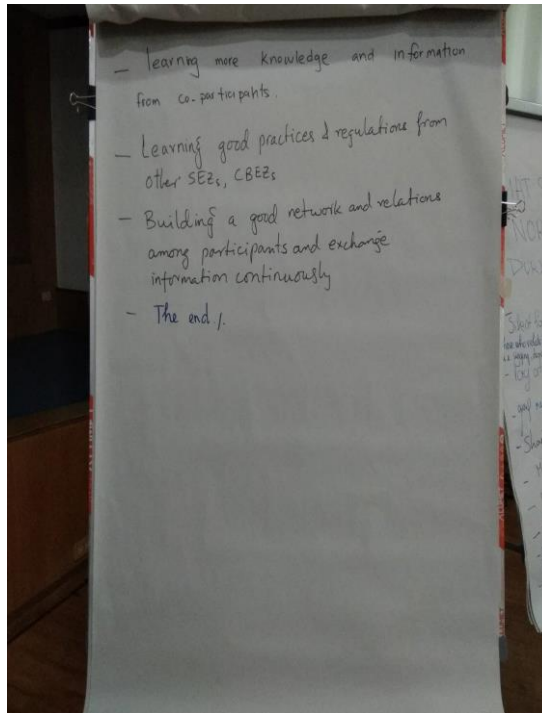 — learning more knowledge and information
from co-participants.
— Learning good practices & regulations from
other SEZs, CBEZs
— Building a good network and relations
among participants and exchange
information continuously
— The end /.